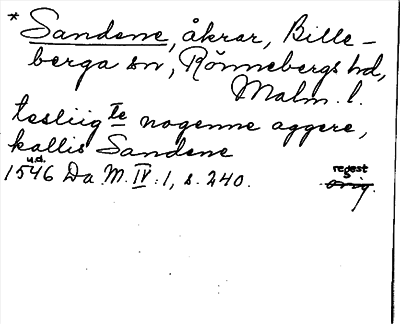 * Sandene, åkrar, Bille-
berga sn, Rönnebergs hd,
Malm. l.
tesliig te nogenne aggere,
kallis Sandene
u.d.
1546 Da. M. IV: 1, s. 240.
regest
orig.